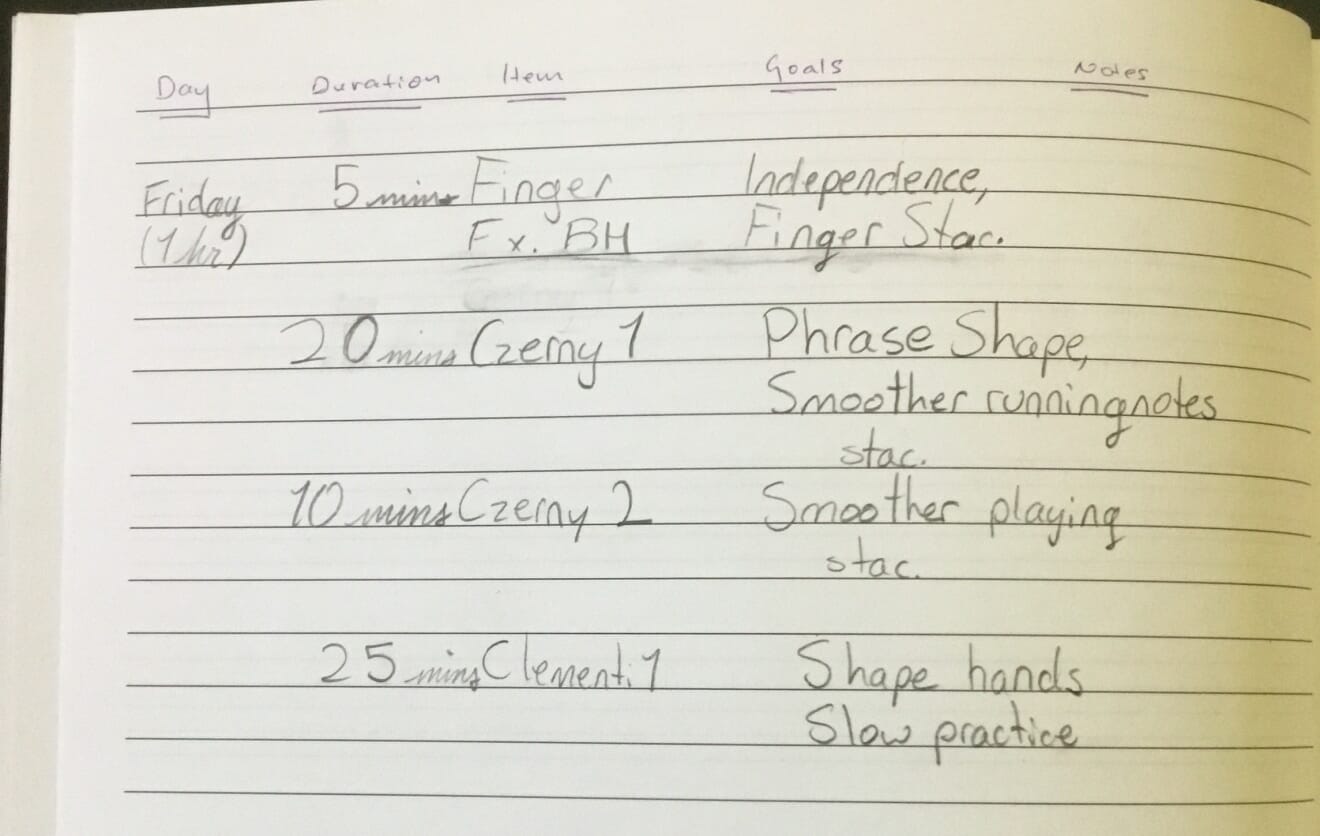 Day Duration Item Goals Notes
Friday 5 mins Finger Independence,
(1 hr) Ex. BH Finger Stac.
20 mins Czerny 1 Phrase Shape,
Smoother running notes
stac.
10 mins Czerny 2 Smoother playing
stac.
25 mins Clementi 1 Shape hands
Slow practice